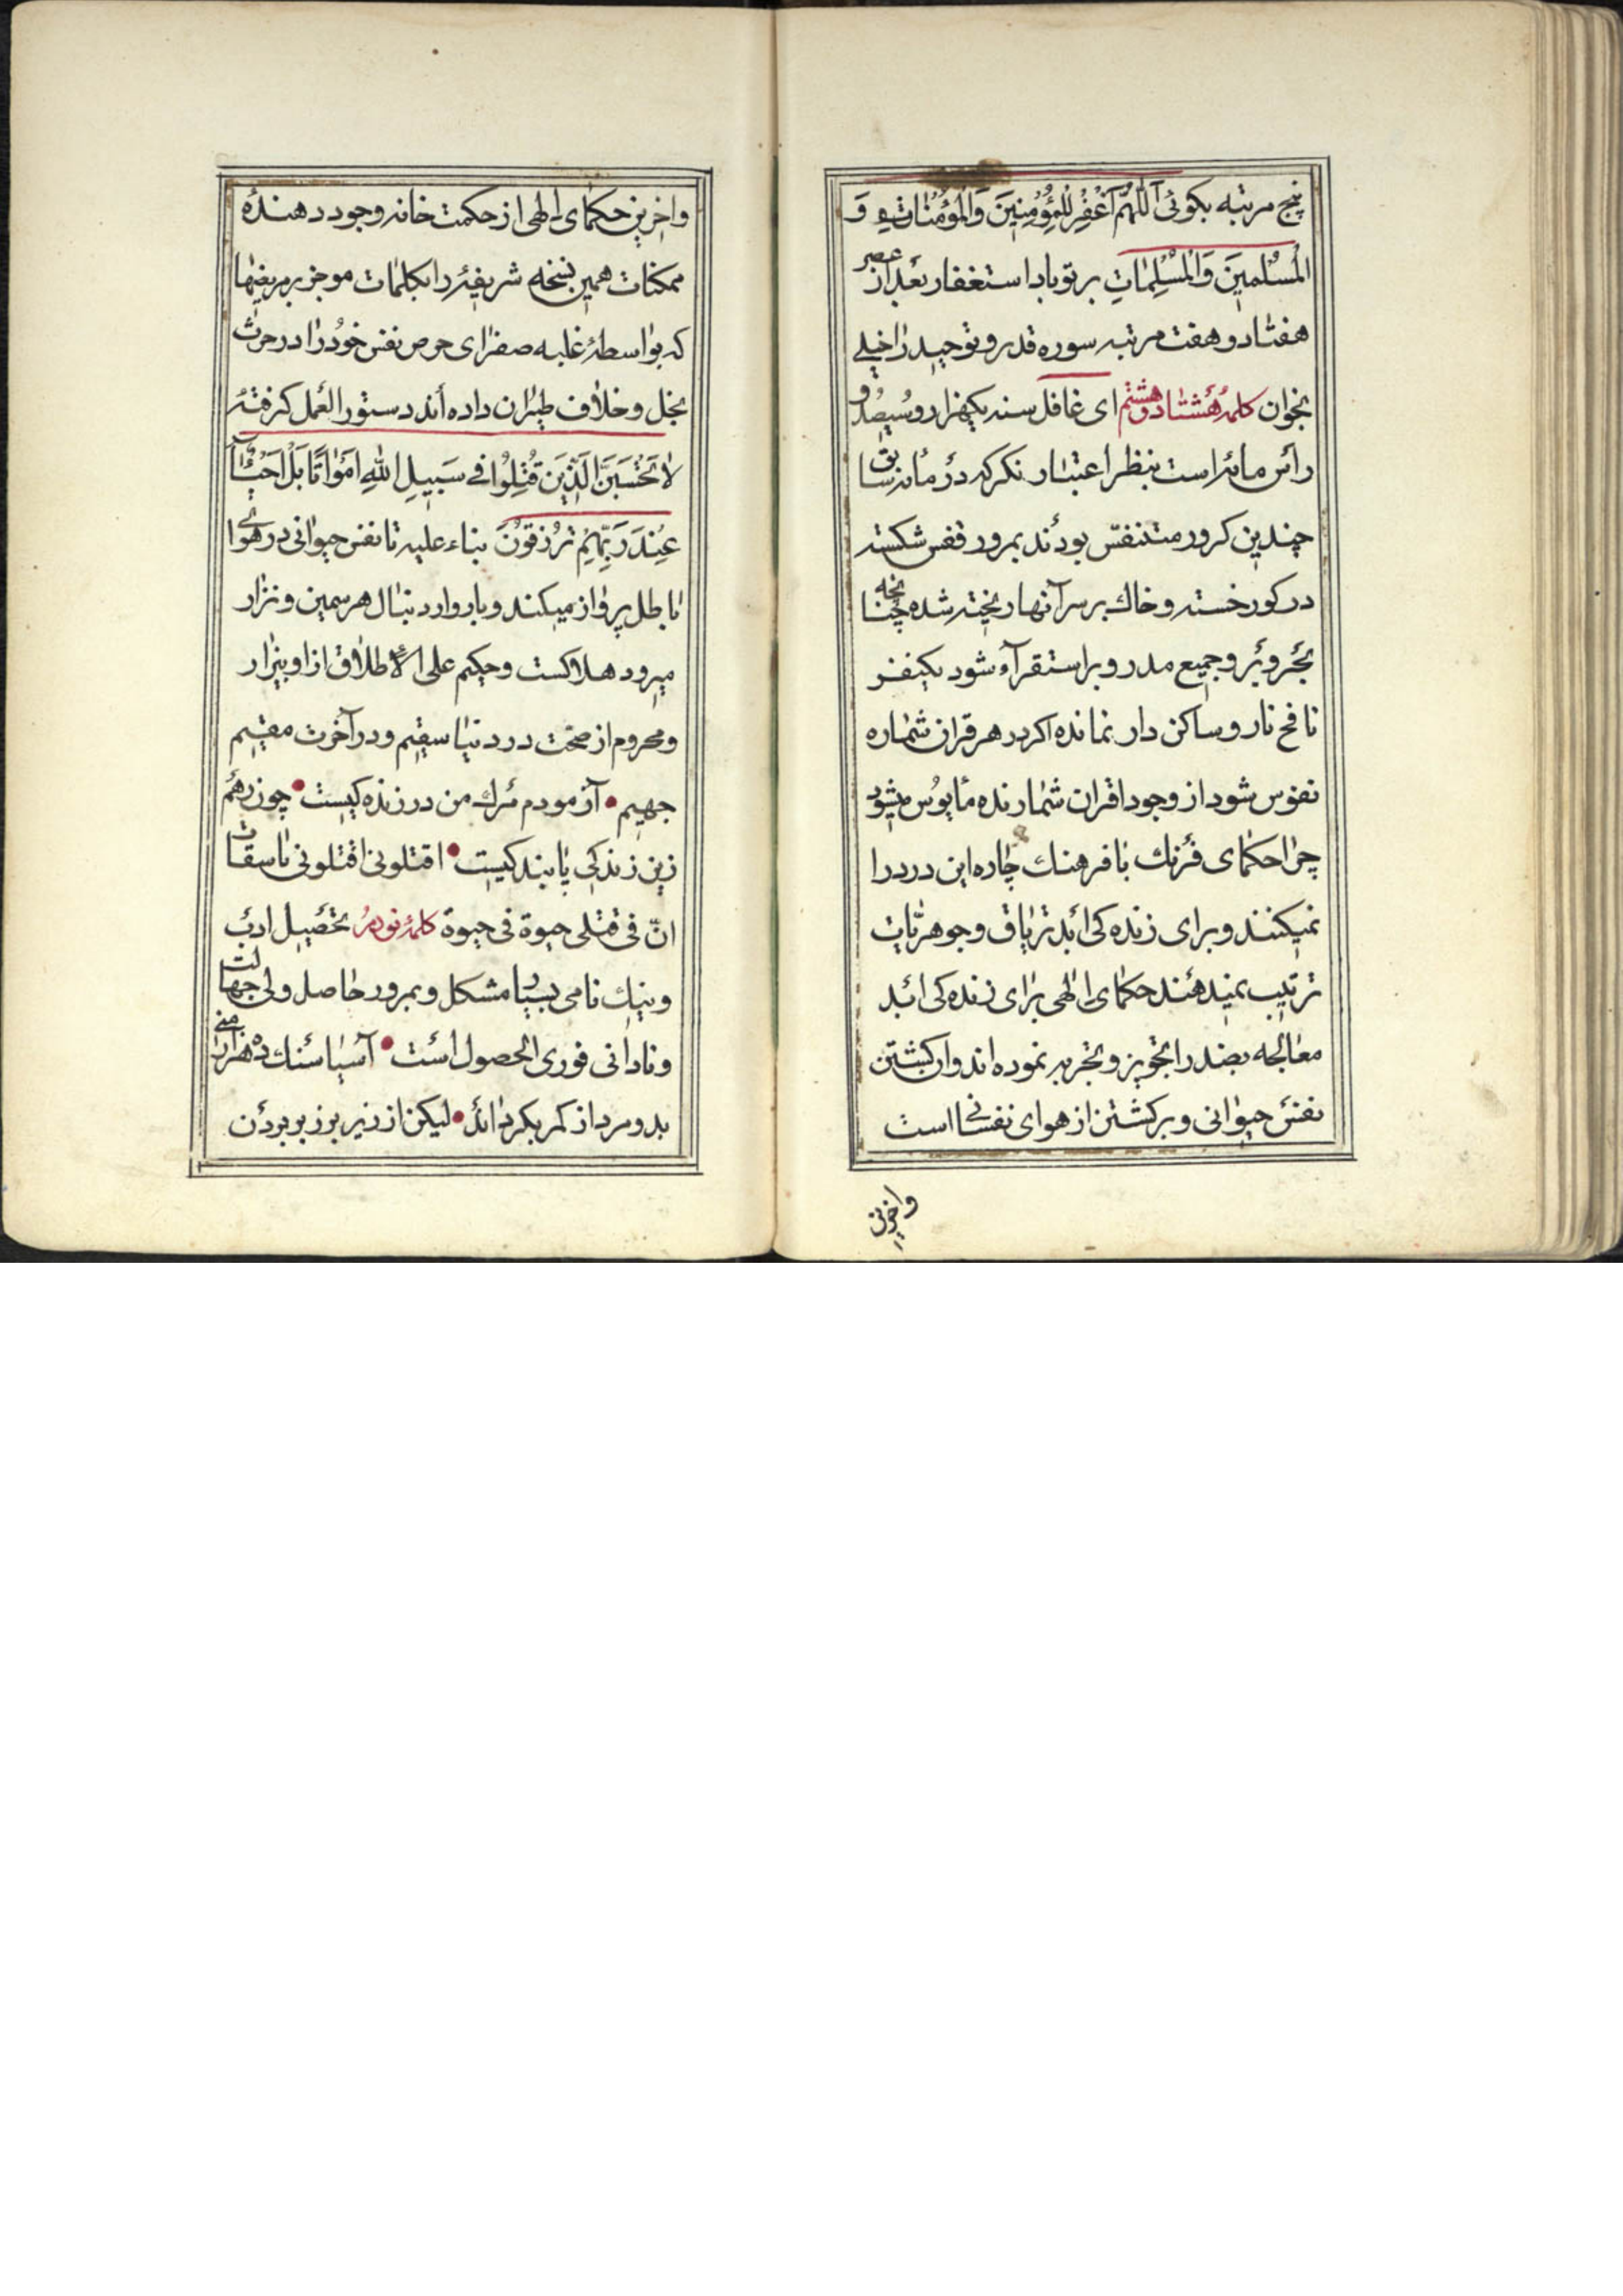 پنج مرتبه بکوئی اَللّهُمَّ اغْفِرْ لِلْمُؤْمِنِينَ وَالْمُؤْمِناتِ وَ
الْمُسْلِمِينَ وَالْمُسْلِماتِ بر تو باد استغفار بعد از عصر
هفتاد و هفت مرتبه سوره قدر و توحید را خیلی
بخوان کلمهٔ هشتاد و هشتم ای غافل سنه یکهزار و سیصد و
رأس مائه است بنظر اعتبار نکر که در مائه سابق
چندین کرور متنفس بودند بمرور قفس شکسته
در کور خسته و خاك بر سر آنها ریخته شده چنانچه
بحر و بر و جمیع مدر و بر استقرآء شود یکنفر
نافخ نار و ساکن دار نمانده اکر در هر قران شماره
نفوس شود از وجود اقران شمارنده مأیوس میشود
چرا حکمای فرنك با فرهنك چاره این درد را
نمیکنند و برای زنده کی ابد تریاق و جوهریّات
ترتیب نمیدهند حکمای الهی برای زنده کی ابد
معالجه بضد را تجویز و تجربه نموده اند و ان کشتن
نفس حیوانی و برکشتن از هوای نفسانی است
و اخرین
و اخرین حکمای الهی از حکمت خانه وجود دهندهٔ
ممکنات همین نسخه شریفه را بکلمات موجز بر مریضها
که بواسطهٔ غلبه صفرای حرص نفس خود را در حرث
بخل و خلاف طیران داده اند دستور العمل کرفته
لا تَحْسَبَنَّ الَّذِينَ قُتِلُوا فِي سَبِيلِ اللهِ اَمْواتًا بَلْ اَحْيآءٌ
عِنْدَ رَبِّهِمْ يُرْزَقُونَ بناء علیه تا نفس حیوانی در هوای
باطل پرواز میکند و بار وارد نبال هر سمین و نزار
میرود هلاکست و حکیم علی الاطلاق از او بیزار
و محروم از صحّت در دنیا سقیم و در آخرت مقیم
جهیم • آزمودم مرك من در زنده کیست • چون رهم
زین زندکی پایندکیست • اقتلونی اقتلونی یا ثقات
انّ فی قتلی حیوة فی حیوة کلمهٔ نودم تحصیل ادب
و نیك نامی بسیار مشکل و بمرور حاصل ولی جهالت
و نادانی فوری الحصول است • آسیا سنك ده هزار منی
بدو مرد از کمر بکرداند • لیکن از زیر بر زبر بردن